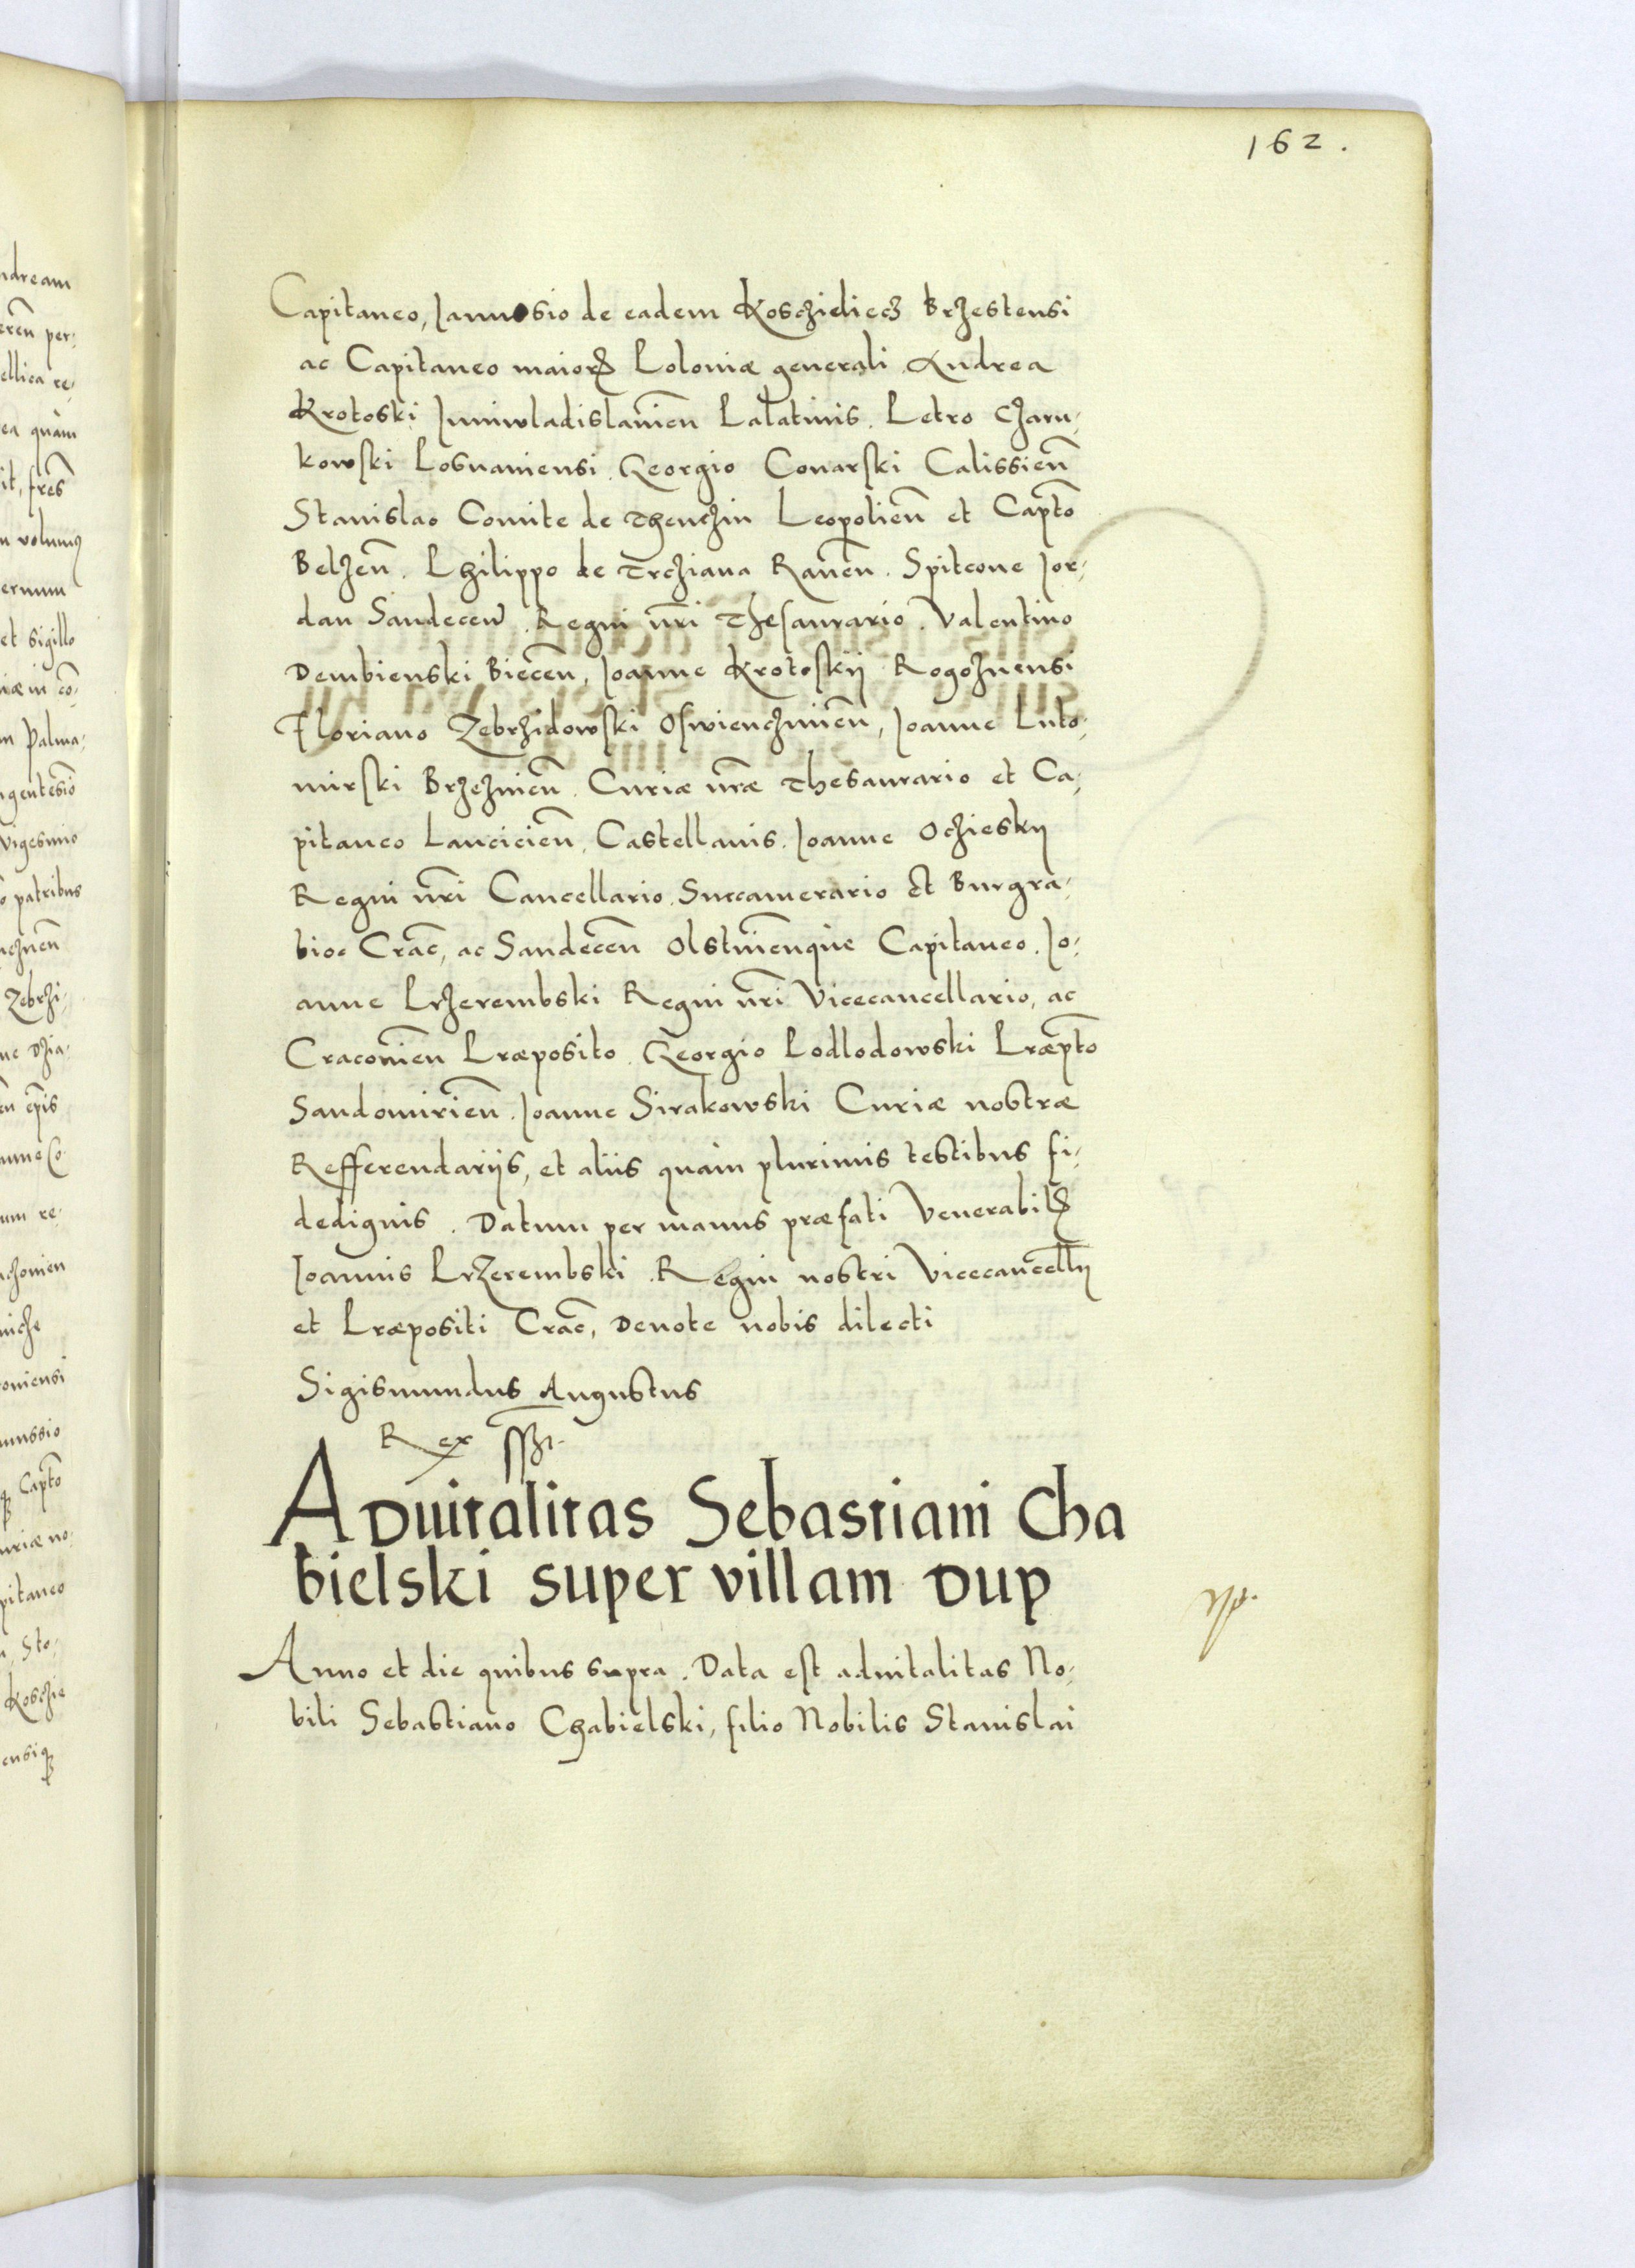 162.
Capitaneo, Iannosio de eadem Kosczieliecz Brzestensi
ac Capitaneo maioris Poloniæ generali. Andrea
Krotoski Iuniwladislavieñ Palatinis. Petro Czarn-
kowski Posnaniensi. Georgio Conarski Calissieñ
Stanislao Comite de Thenczin Leopolieñ et Capto
Belzeñ. Philippo de Trcziana Raveñ. Spitcone Ior-
dan Sandeceñ. Regni nri Thesaurario. Valentino
Dembienski Bieceñ, Ioanne Krotoskij Rogoznensi
Floriano Zebrzidowski Oswienczimeñ, Ioanne Luto-
mirski Brzezineñ. Curiæ nræ Thesaurario et Ca-
pitaneo Lancicieñ. Castellanis. Ioanne Oczieskij
Regni nri Cancellario. Succamerario et Burgra-
bioc Crac, ac Sandeceñ Olstinenque Capitaneo. Io-
anne Przerembski Regni nri Vicecancellario, ac
Cracovieñ Præposito. Georgio Podlodowski Præpto
Sandomirieñ. Ioanne Sirakowski Curiæ nostræ
Refferendarijs, et aliis quàm plurimis testibus fi-
dedignis. Datum per manus præfati Venerabilis
Ioannis Przerembski. Regni nostri Vicecancellij
et Præpositi Crac, Devote nobis dilecti
Sigismundus Augustus
Rex sszt.
Aduitalitas Sebastiani Cha
bielski super villam Dup
Anno et die quibus supra. Data est aduitalitas No-
bili Sebastiano Chabielski, filio Nobilis Stanislai